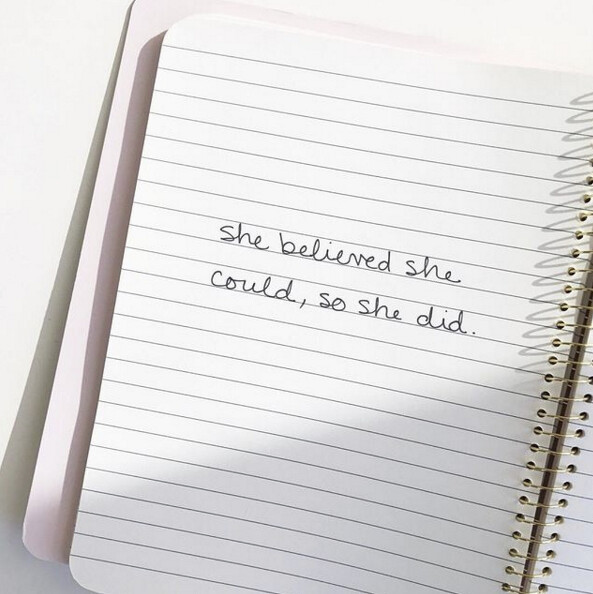 she believed she
could, so she did.